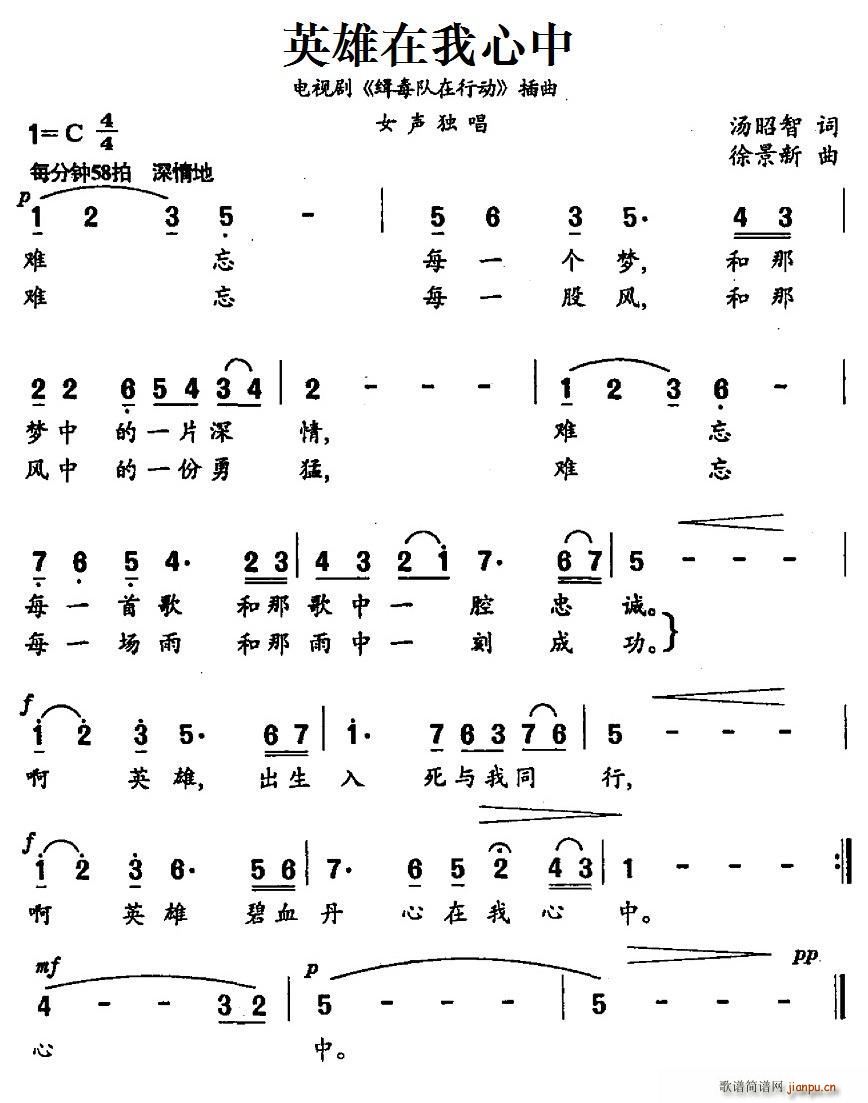 英雄在我心中
电视剧《缉毒队在行动》插曲
女声独唱
1=C 4/4
汤昭智 词
徐景新 曲
每分钟58拍 深情地
p
1 2 3 5 - | 5 6 3 5· 4 3 |
难 忘 每 一 个 梦, 和 那
难 忘 每 一 股 风, 和 那
2 2 6 5 4 3 4 | 2 - - - | 1 2 3 6 - |
梦 中 的 一 片 深 情, 难 忘
风 中 的 一 份 勇 猛, 难 忘
7 6 5 4· 2 3 | 4 3 2 1 7· 6 7 | 5 - - - |
每 一 首 歌 和 那 歌 中 一 腔 忠 诚。
每 一 场 雨 和 那 雨 中 一 刻 成 功。}
f
1 2 3 5· 6 7 | 1· 7 6 3 7 6 | 5 - - - |
啊 英 雄, 出 生 入 死 与 我 同 行,
f
1 2 3 6· 5 6 | 7· 6 5 2 4 3 | 1 - - - :||
啊 英 雄 碧 血 丹 心 在 我 心 中。
mf p pp
4 - - 3 2 | 5 - - - | 5 - - - ||
心 中。
歌谱简谱网 jianpu.cn